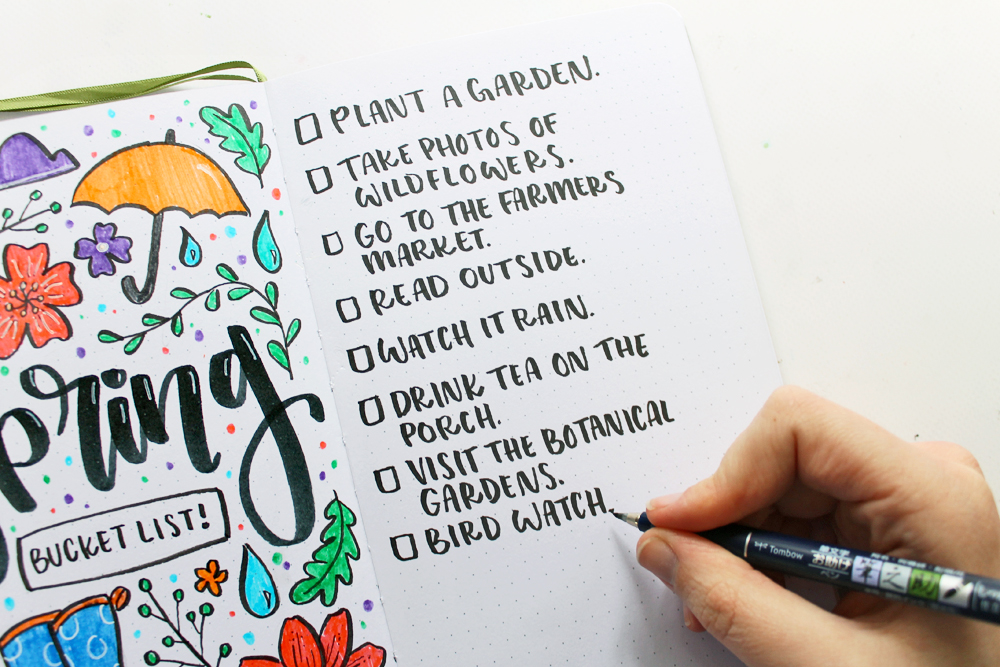 pring
BUCKET LIST!
PLANT A GARDEN.
TAKE PHOTOS OF
WILDFLOWERS.
GO TO THE FARMERS
MARKET.
READ OUTSIDE.
WATCH IT RAIN.
DRINK TEA ON THE
PORCH.
VISIT THE BOTANICAL
GARDENS.
BIRD WATCH.
Tombow